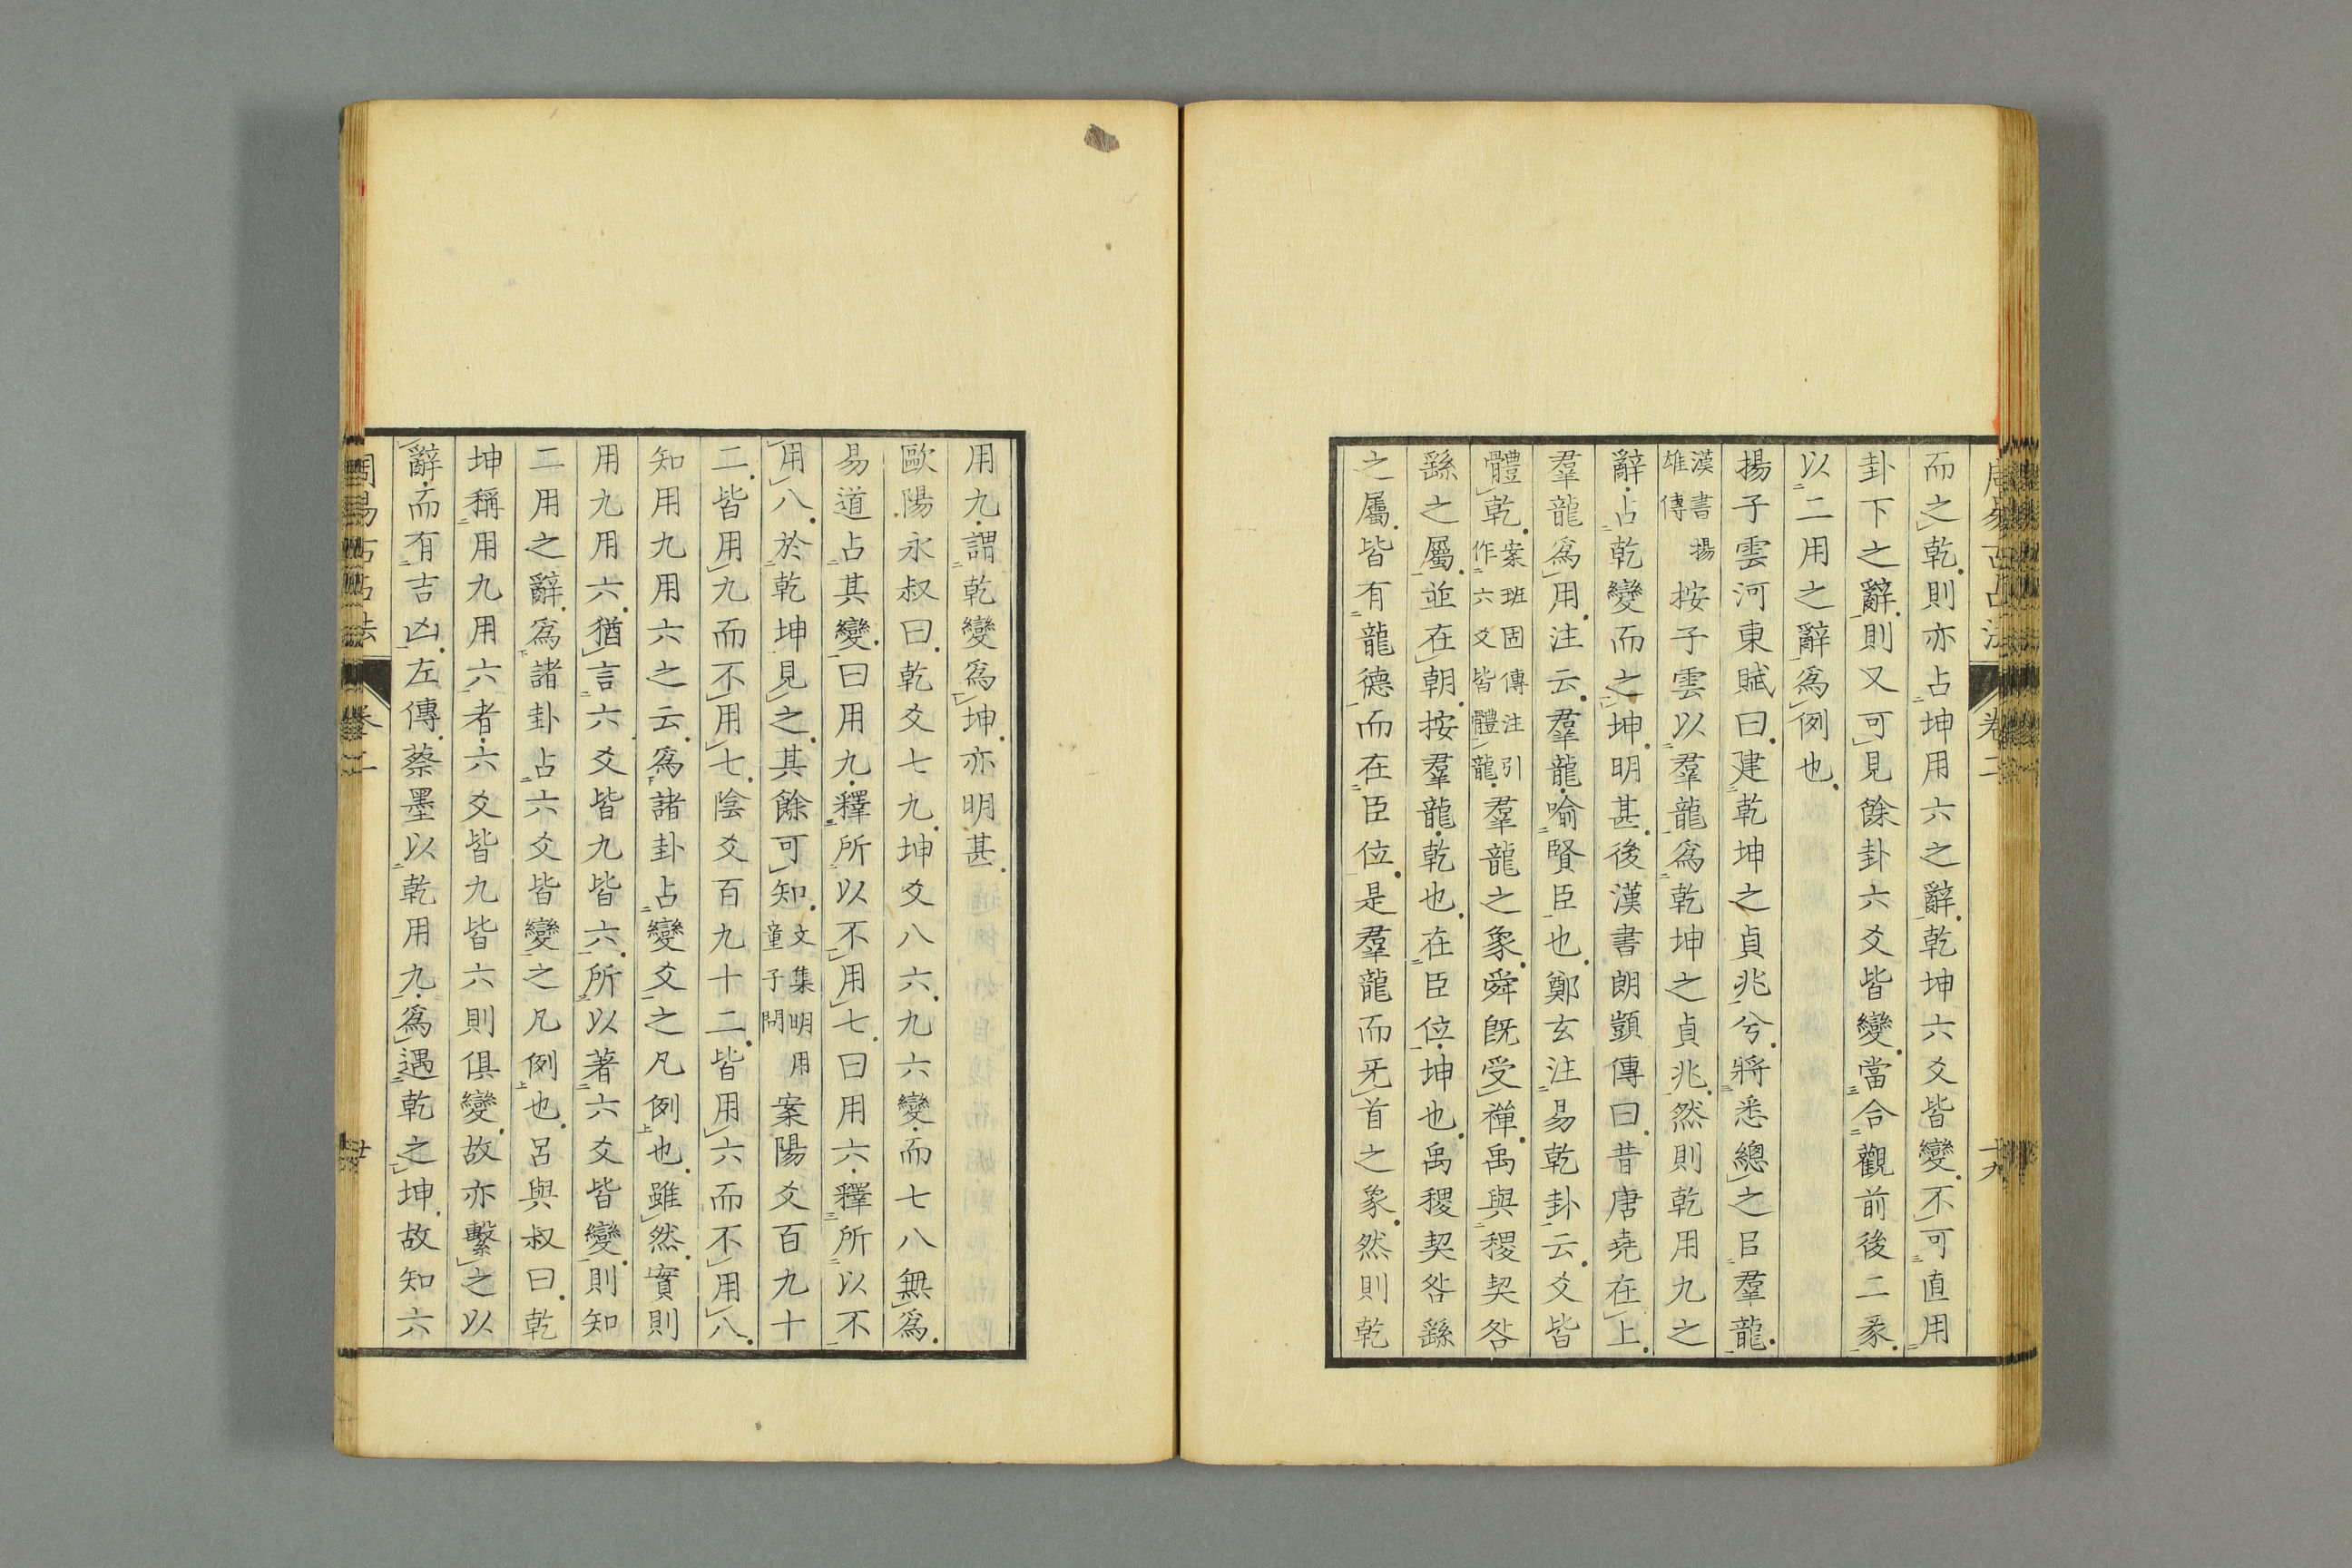 周易古占法
卷二
十九
而之乾則亦占坤用六之辭乾坤六爻皆變不可直用
卦下之辭則又可見餘卦六爻皆變當合觀前後二彖
以二用之辭爲例也
揚子雲河東賦曰建乾坤之貞兆兮將悉總之㠯羣龍
漢書揚
雄傳
按子雲以羣龍爲乾坤之貞兆然則乾用九之
辭占乾變而之坤明甚後漢書朗顗傳曰昔唐堯在上
羣龍爲用注云羣龍喻賢臣也鄭玄注易乾卦云爻皆
體乾
案班固傳注引
作六爻皆體龍
羣龍之象舜旣受禪禹與稷契咎
繇之屬並在朝按羣龍乾也在臣位坤也禹稷契咎繇
之屬皆有龍德而在臣位是羣龍而旡首之象然則乾
用九謂乾變爲坤亦明甚
歐陽永叔曰乾爻七九坤爻八六九六變而七八無爲
易道占其變曰用九釋所以不用七曰用六釋所以不
用八於乾坤見之其餘可知
文集明用
童子問
案陽爻百九十
二皆用九而不用七陰爻百九十二皆用六而不用八
知用九用六之云爲諸卦占變爻之凡例也雖然實則
用九用六猶言六爻皆九皆六所以著六爻皆變則知
二用之辭爲諸卦占六爻皆變之凡例也呂與叔曰乾
坤稱用九用六者六爻皆九皆六則俱變故亦繫之以
辭而有吉凶左傳蔡墨以乾用九爲遇乾之坤故知六
周易古占法
卷二
廿